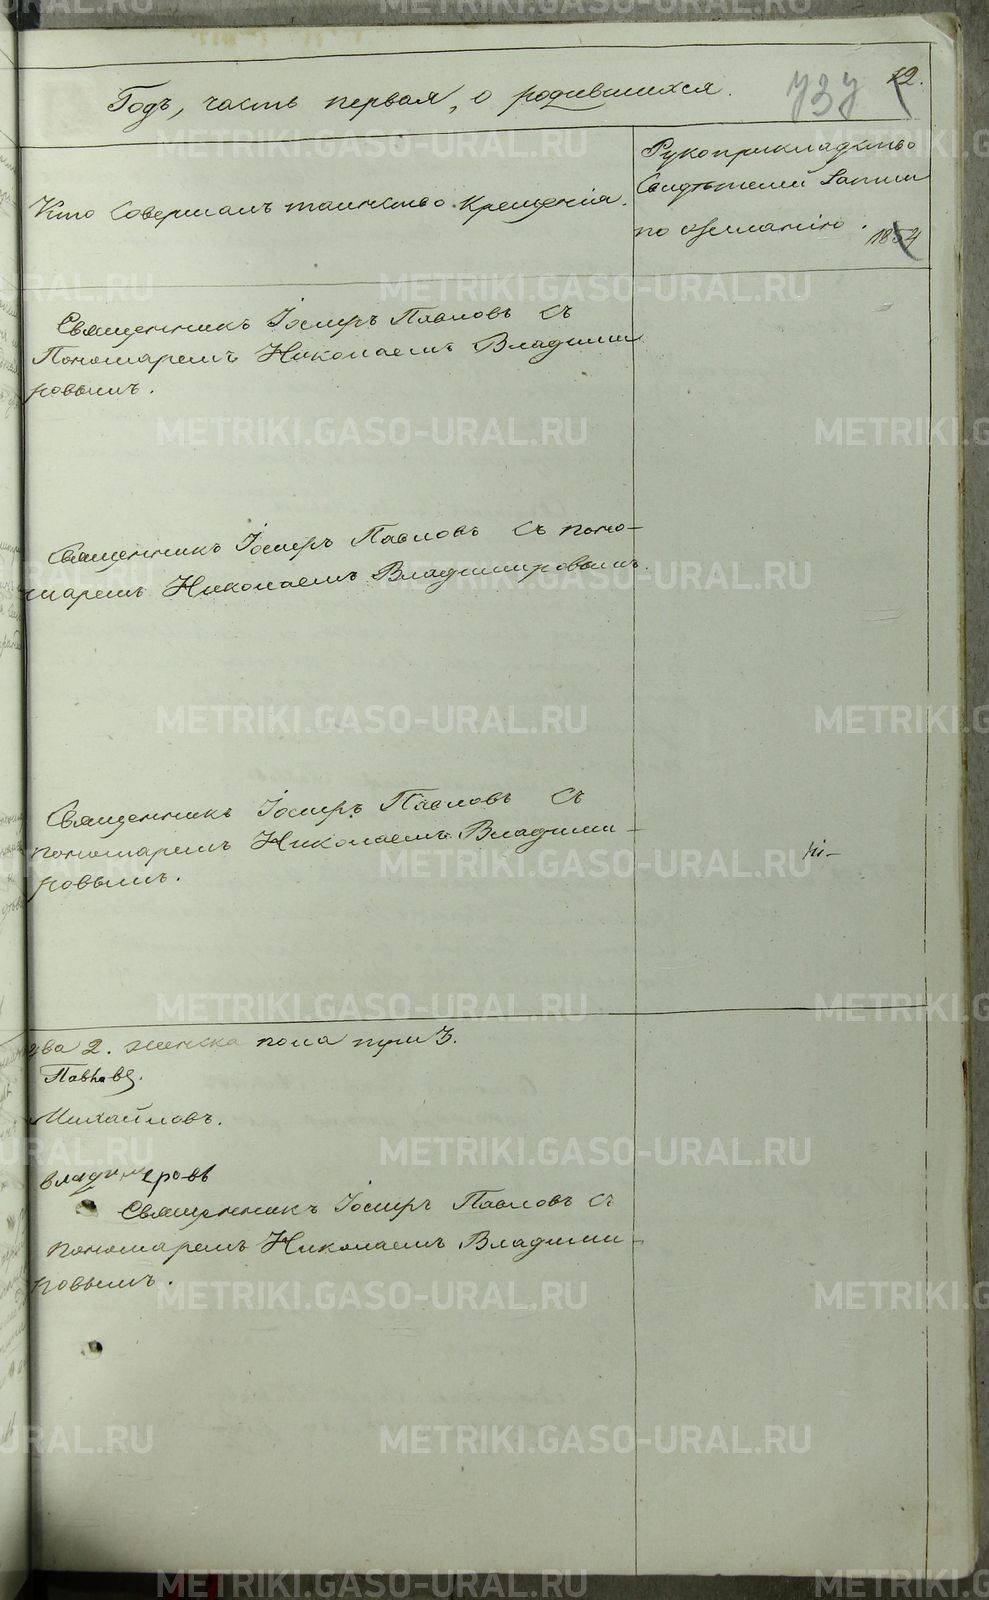 Годъ, часть первая, о родившихся.
737
12.
Кто совершалъ таинство крещенія.
Рукоприкладство
Свидѣтелей записи
по желанію.
1854
Священникъ Іосифъ Павловъ съ
Пономаремъ Николаемъ Владими
ровымъ.
Священникъ Іосифъ Павловъ съ поно-
маремъ Николаемъ Владимировымъ.
Священникъ Іосифъ Павловъ съ
пономаремъ Николаемъ Владими-
ровымъ.
два 2. женска пола три 3.
Павловъ.
Михайловъ.
Владимеровъ
Священникъ Іосифъ Павловъ съ
пономаремъ Николаемъ Владими-
ровымъ.
METRIKI.GASO-URAL.RU